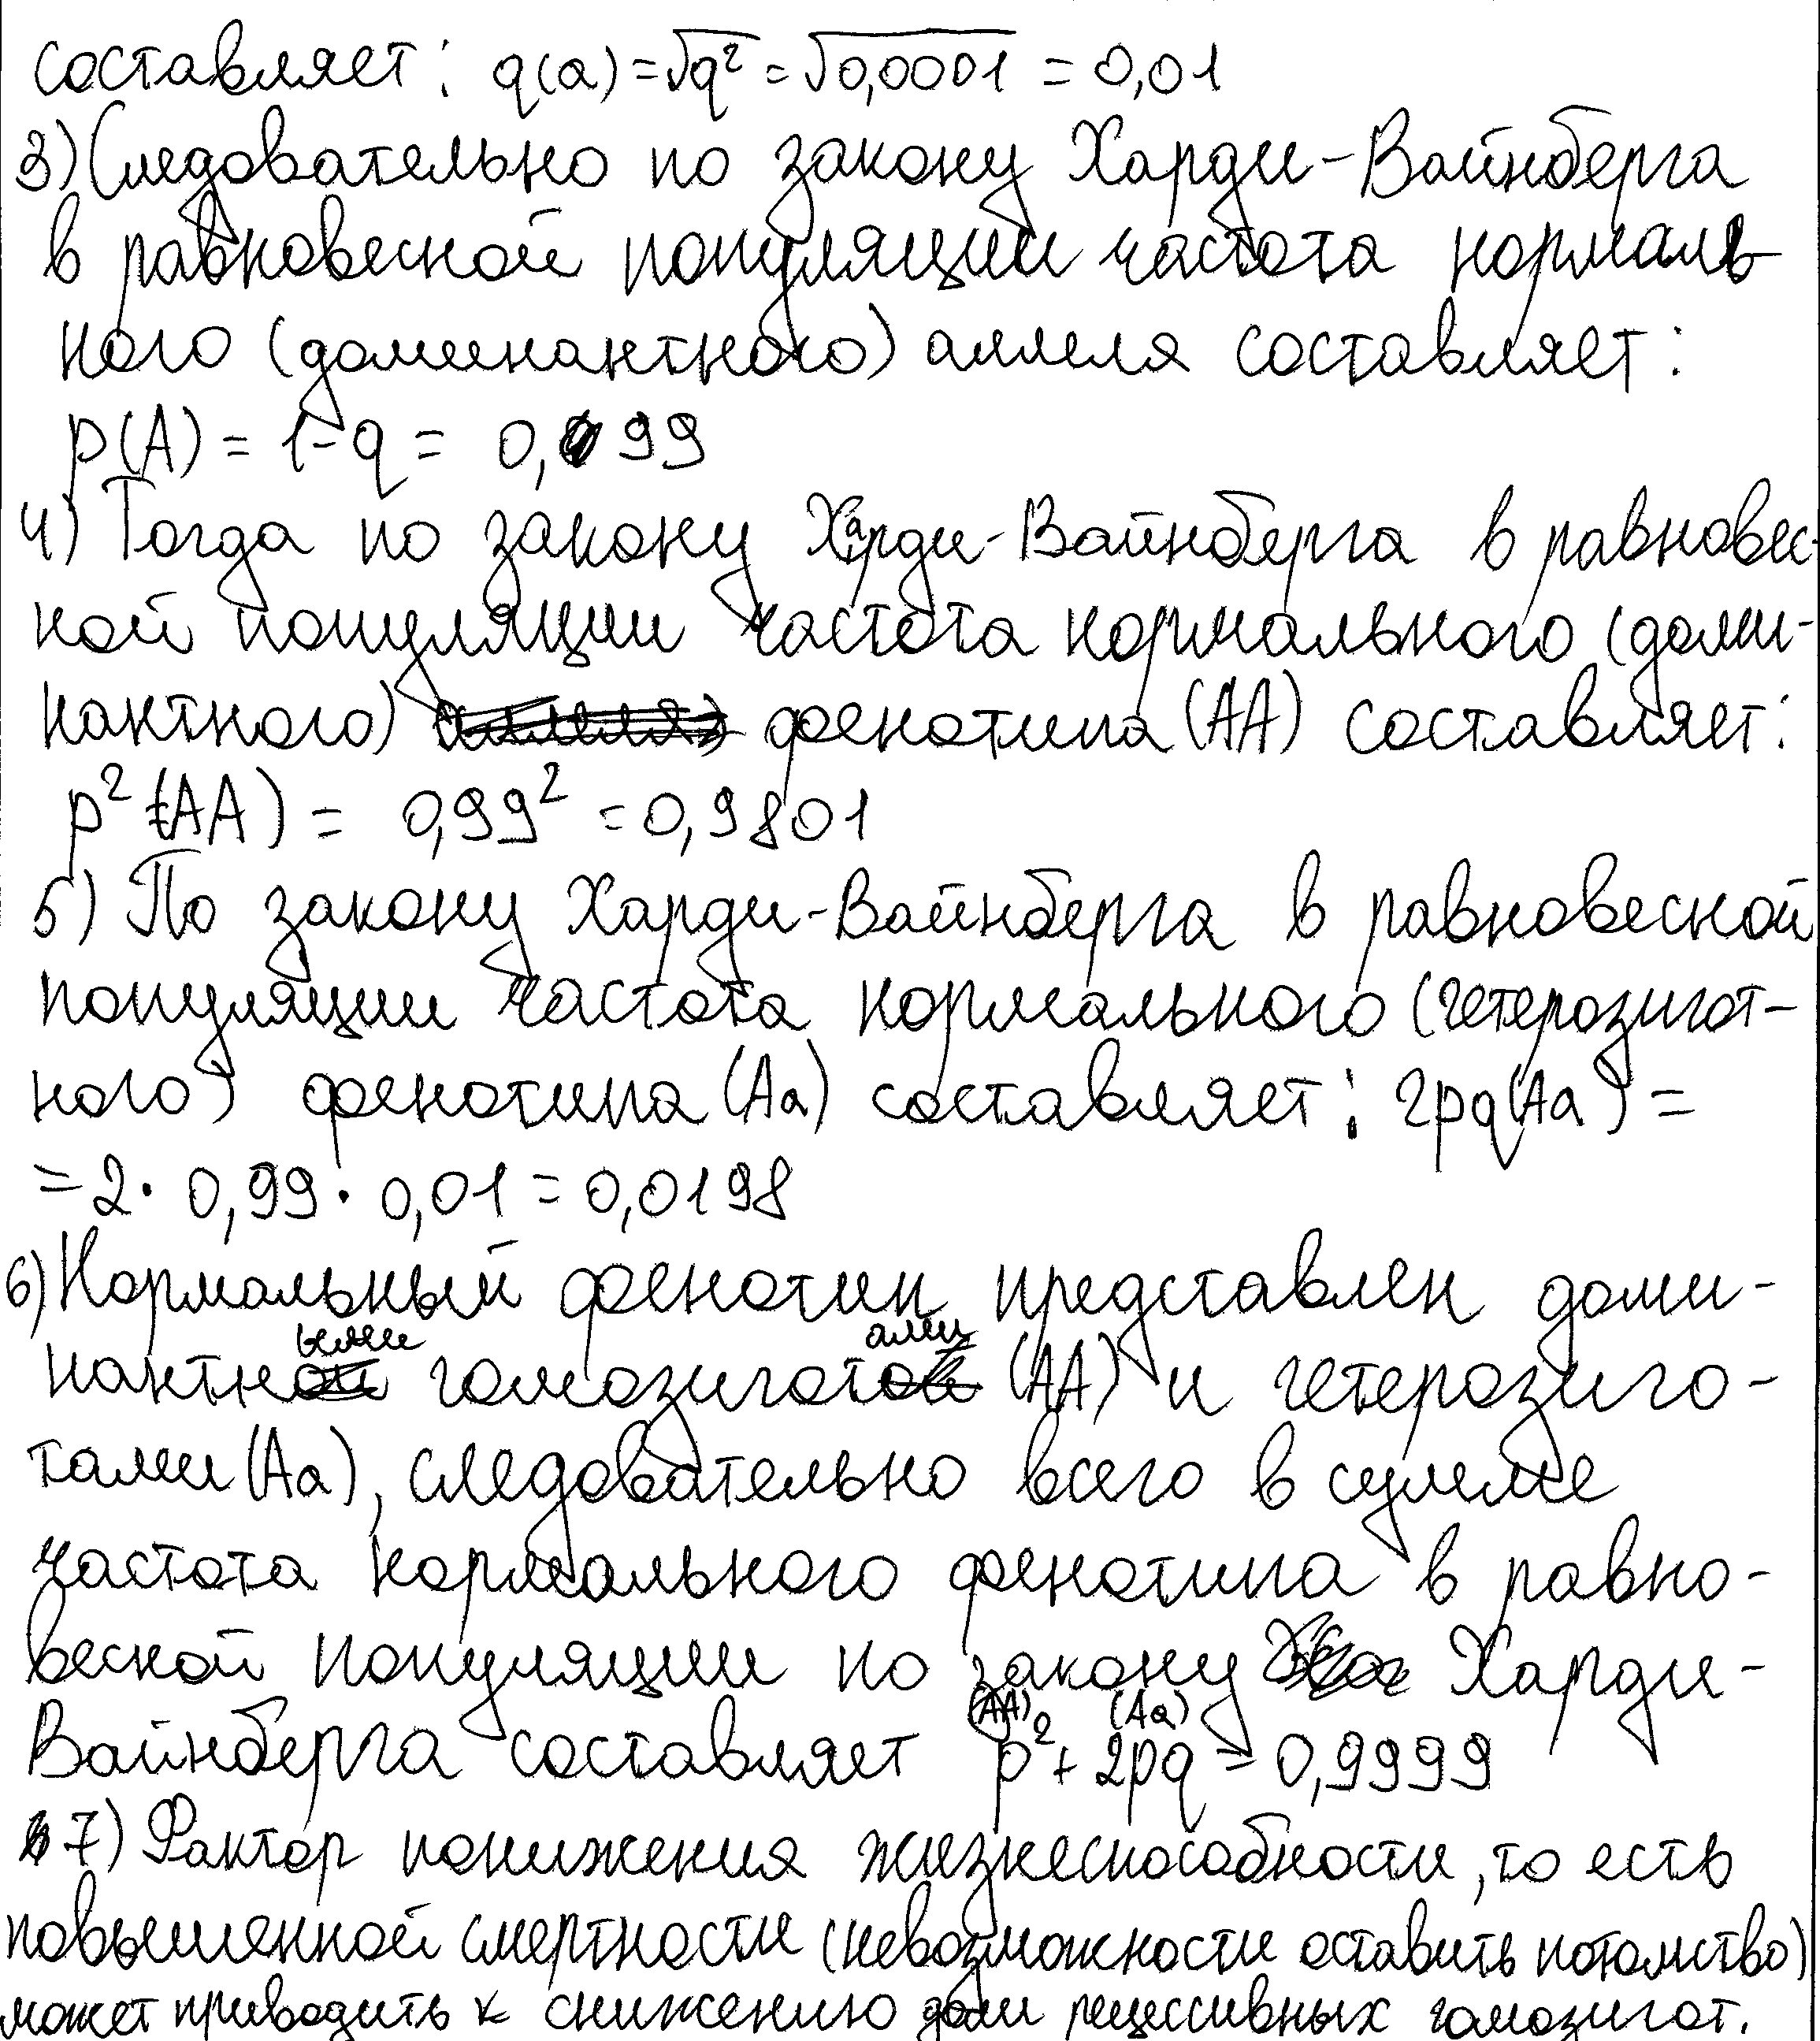 составляет: q(a)=√q² = √0,0001 = 0,01
3) Следовательно по закону Харди-Вайнберга
в равновесной популяции частота нормаль
ного (доминантного) аллеля составляет:
p(A) = 1-q = 0,99
4) Тогда по закону Харди-Вайнберга в равновес-
ной популяции частота нормального (доми-
нантного) фенотипа (AA) составляет:
p² (AA) = 0,99² = 0,9801
5) По закону Харди-Вайнберга в равновесной
популяции частота нормального (гетерозигот-
ного) фенотипа (Aa) составляет: 2pq(Aa) =
= 2 · 0,99 · 0,01 = 0,0198
6) Нормальный фенотип представлен доми-
нантными гомозиготами (AA) и гетерозиго-
тами (Aa), следовательно всего в сумме
частота нормального фенотипа в равно-
весной популяции по закону Харди-
Вайнберга составляет p²(AA) + 2pq(Aa) = 0,9999
7) Фактор понижения жизнеспособности, то есть
повышенной смертности (невозможности оставить потомство)
может приводить к снижению доли рецессивных гомозигот.